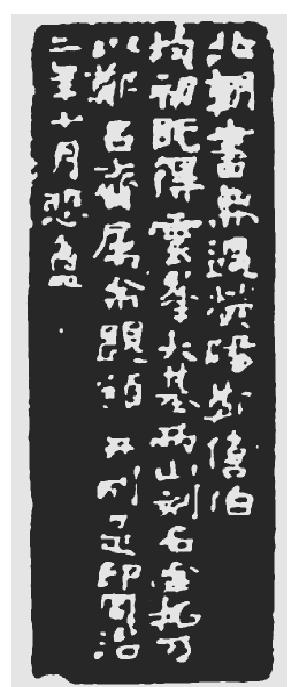 北朝書無過滎陽鄭僖伯
均初既得雲峯大基兩山刻石拓乃
以鄭名齋屬余刻是印同治
二年十月悲盦